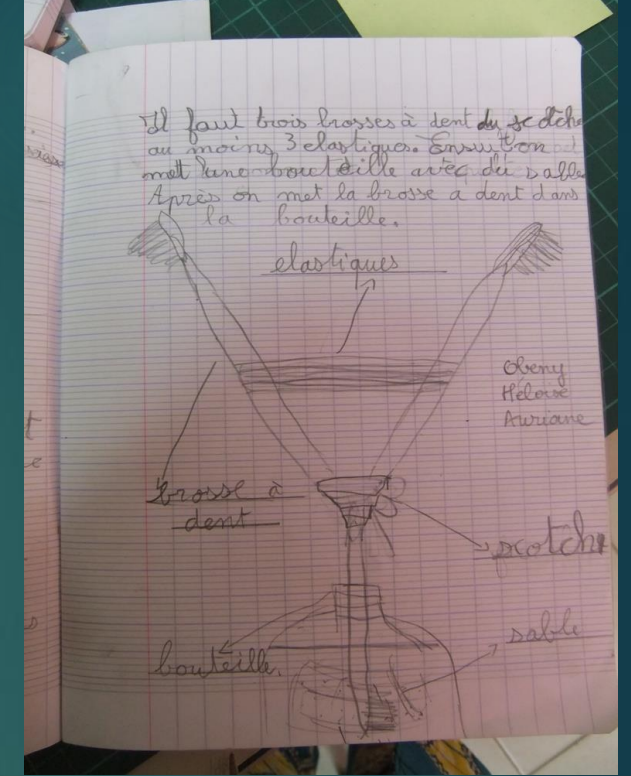 Il faut trois brosses à dent du scotche
au moins 3 elastiques. Ensuit on
met une bouteille avec du sable
Après on met la brosse a dent dans
la bouteille.
elastiques
Obeny
Héloïse
Auriane
brosse à
dent
scotch
sable
bouteille.